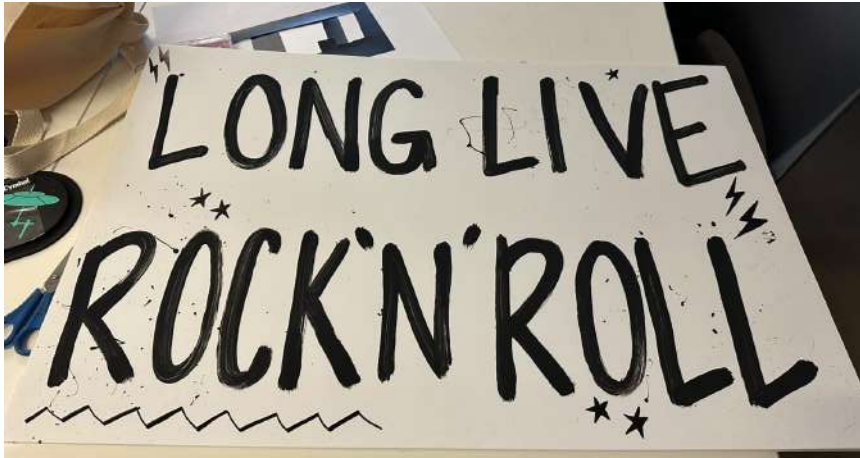 LONG LIVE
ROCK'N'ROLL